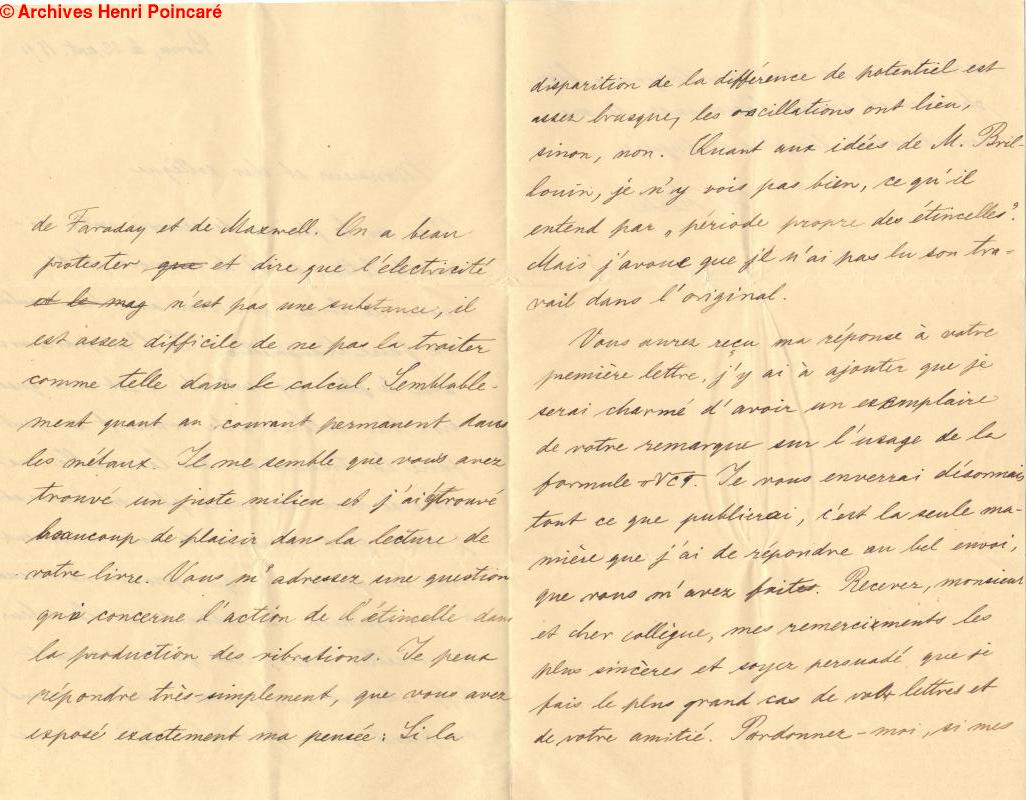 © Archives Henri Poincaré
de Faraday et de Maxwell. On a beau
protester que et dire que l'électricité
et le mag n'est pas une substance, il
est assez difficile de ne pas la traiter
comme telle dans le calcul. Semblable-
ment quant au courant permanent dans
les métaux. Il me semble que vous avez
trouvé un juste milieu et j'ai trouvé
beaucoup de plaisir dans la lecture de
votre livre. Vous m'adressez une question
qui concerne l'action de l'étincelle dans
la production des vibrations. Je peux
répondre très-simplement, que vous avez
exposé exactement ma pensée: Si la
disparition de la différence de potentiel est
assez brusque, les oscillations ont lieu,
sinon, non. Quant aux idées de M. Bril-
louin, je n'y vois pas bien, ce qu'il
entend par „période propre des étincelles".
Mais j'avoue que je n'ai pas lu son tra-
vail dans l'original.
Vous aurez reçu ma réponse à votre
première lettre, j'y ai à ajouter que je
serai charmé d'avoir un exemplaire
de votre remarque sur l'usage de la
formule . Je vous enverrai désormais
tout ce que publierai, c'est la seule ma-
nière que j'ai de répondre au bel envoi,
que vous m'avez faites. Recevez, monsieur
et cher collègue, mes remerciements les
plus sincères et soyez persuadé, que je
fais le plus grand cas de votr lettres et
de votre amitié. Pardonnez-moi, si mes